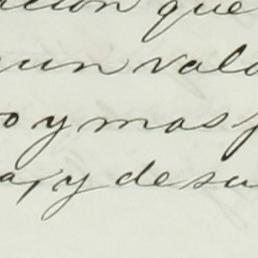 que
un valo
o y mas
a, y de su